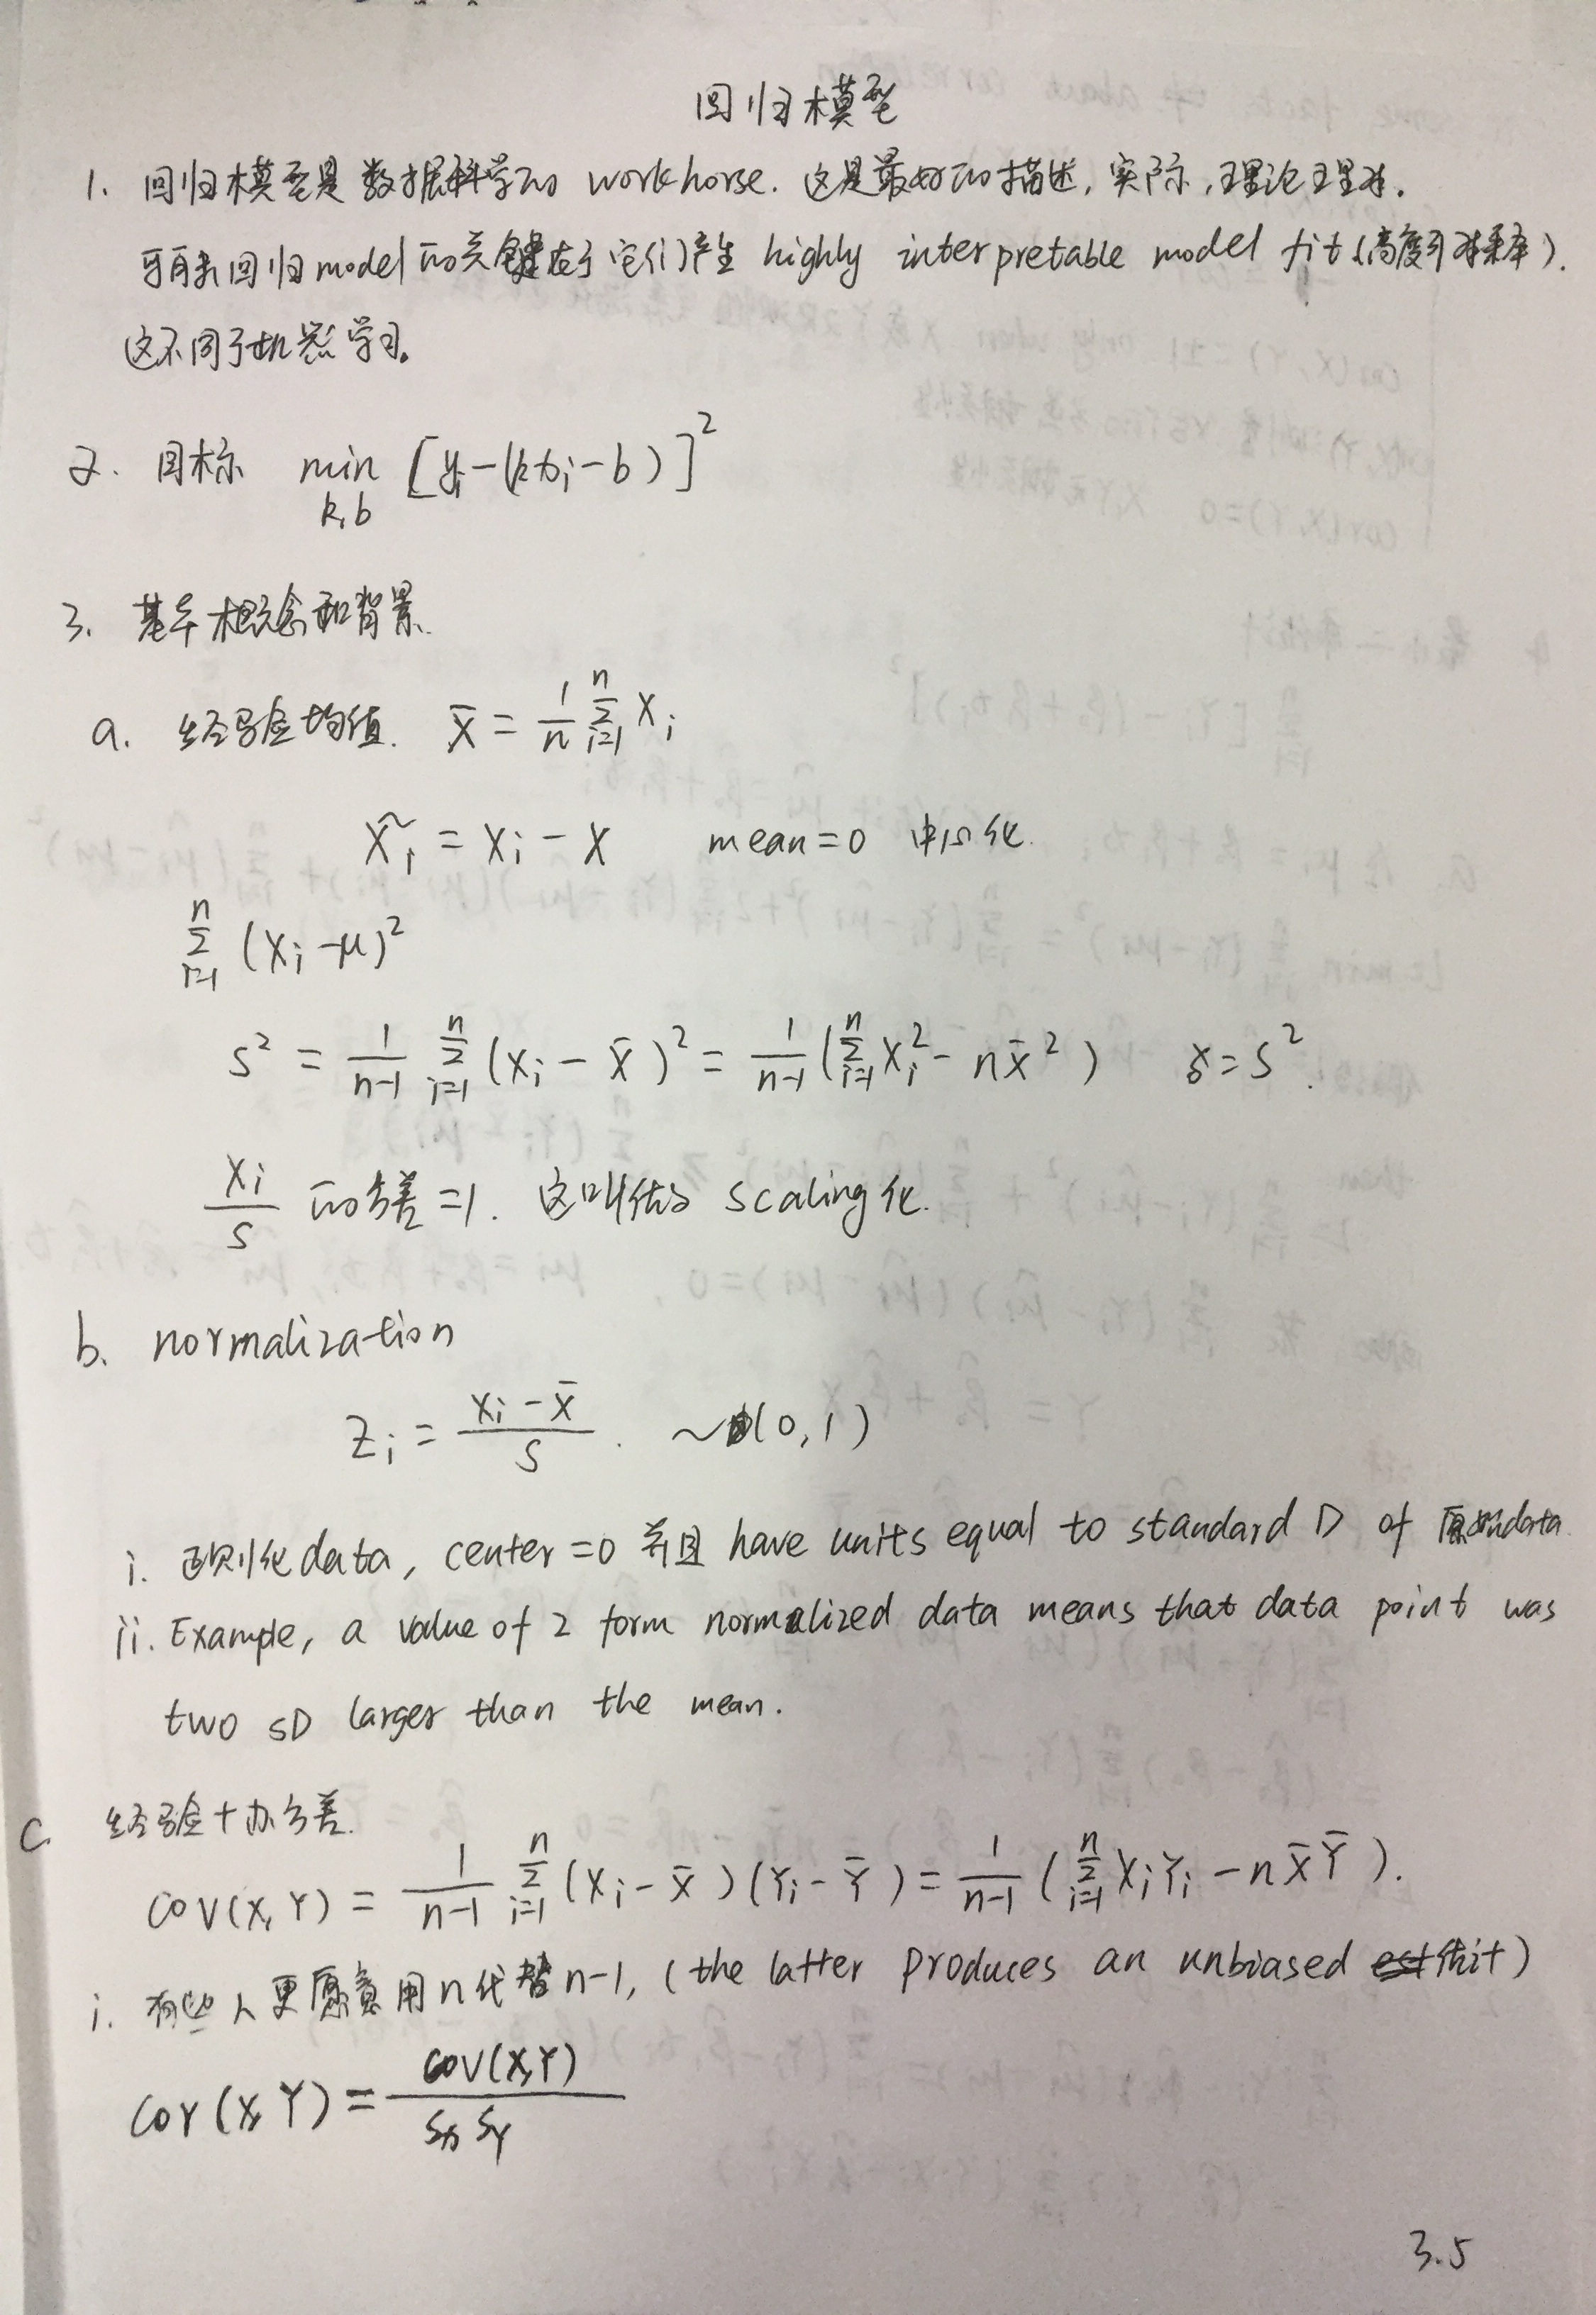 回归模型
1. 回归模型是数据科学的 workhorse. 这是最好的描述, 实际, 理论理解.
回归model的关键在于它们产生 highly interpretable model fit (高度可).
这不同于机器学习.
2. 目标 min [yᵢ-(kxᵢ-b)]²
k,b
3. 基本概念和背景.
a. 经验均值. X̄ = 1/n Σⁿᵢ₌₁ Xᵢ
X̃ᵢ = Xᵢ - X mean=0 中心化.
Σⁿᵢ₌₁ (Xᵢ-μ)²
S² = 1/(n-1) Σⁿᵢ₌₁ (Xᵢ - X̄)² = 1/(n-1) (Σⁿᵢ₌₁ Xᵢ² - nX̄²) = S².
Xᵢ/S 的方差=1. 这叫做 scaling化.
b. normalization
Zᵢ = (Xᵢ - X̄)/S. ~ (0,1)
i. 正则化data, center=0 并且 have units equal to standard D of 原始data.
ii. Example, a value of 2 form normalized data means that data point was
two SD larger than the mean.
c. 经验协方差.
cov(X,Y) = 1/(n-1) Σⁿᵢ₌₁ (Xᵢ - X̄)(Yᵢ - Ȳ) = 1/(n-1) (Σⁿᵢ₌₁ XᵢYᵢ - nX̄Ȳ).
i. 有些人更愿意用n代替n-1, (the latter produces an unbiased 估计)
Cor(X,Y) = cov(X,Y)/(Sₓ Sᵧ)
3.5